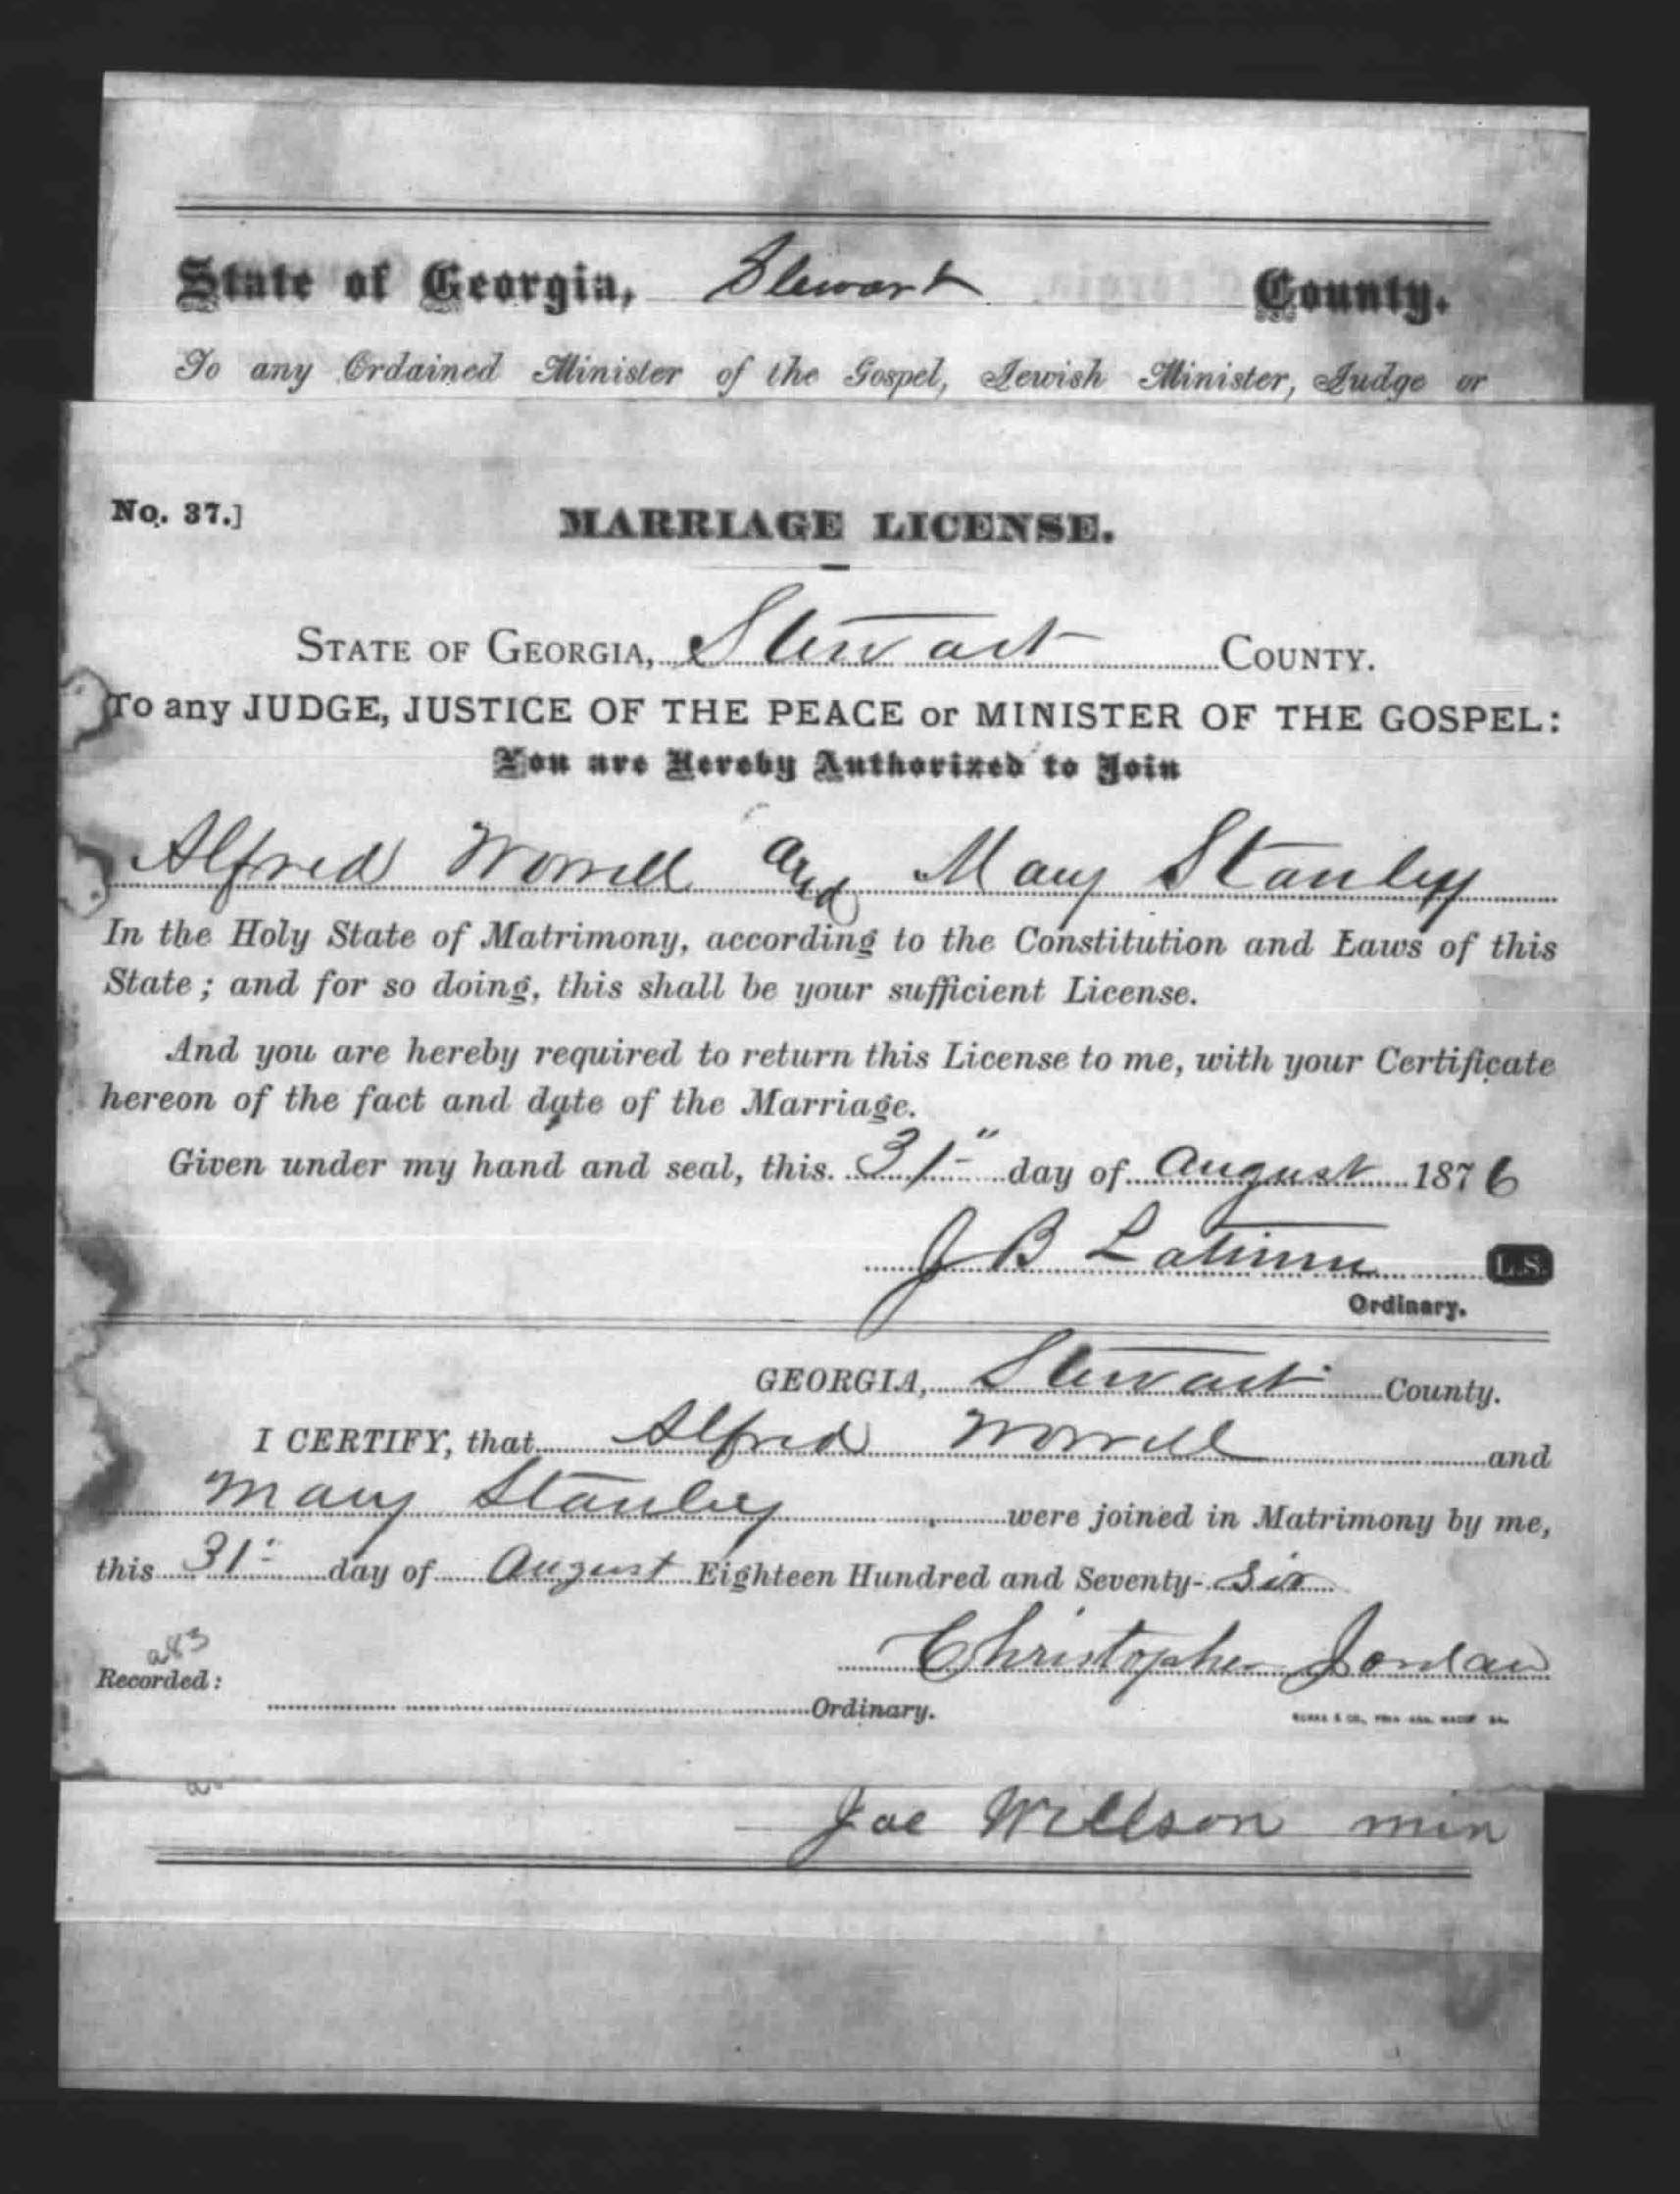 State of Georgia, Stewart County.
To any Ordained Minister of the Gospel, Jewish Minister, Judge or
No. 37.]
MARRIAGE LICENSE.
STATE OF GEORGIA, Stewart COUNTY.
To any JUDGE, JUSTICE OF THE PEACE or MINISTER OF THE GOSPEL:
You are Hereby Authorized to Join
Alfred Worrell and Mary Stanley
In the Holy State of Matrimony, according to the Constitution and Laws of this
State; and for so doing, this shall be your sufficient License.
And you are hereby required to return this License to me, with your Certificate
hereon of the fact and date of the Marriage.
Given under my hand and seal, this 31" day of August 1876
J B Latimer L.S.
Ordinary.
GEORGIA, Stewart County.
I CERTIFY, that Alfred Worrell and
Mary Stanley were joined in Matrimony by me,
this 31 day of August Eighteen Hundred and Seventy-Six
Christopher Jordan
Recorded:
Ordinary.
Joe Willson min